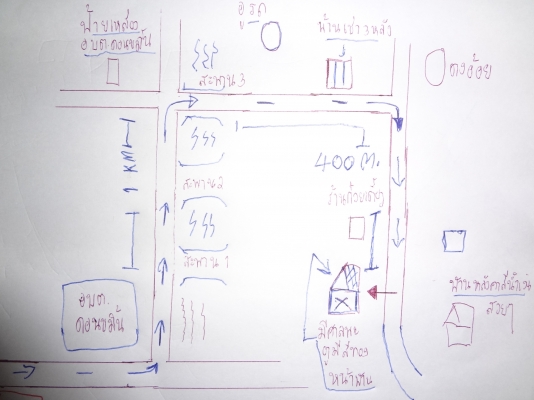 ป้ายเหลือง
อบต.ดอนขมิ้น
อู่รถ
บ้านเช่า 3 หลัง
ดงอ้อย
สะพาน 3
1 KM
400 ม.
สะพาน 2
ร้านก๋วยเตี๋ยว
สะพาน 1
อบต.
ดอนขมิ้น
บ้านหลังคาสีน้ำเงิน
สวยๆ
มีศาลพระ
ภูมิสีทอง
หน้าบ้าน